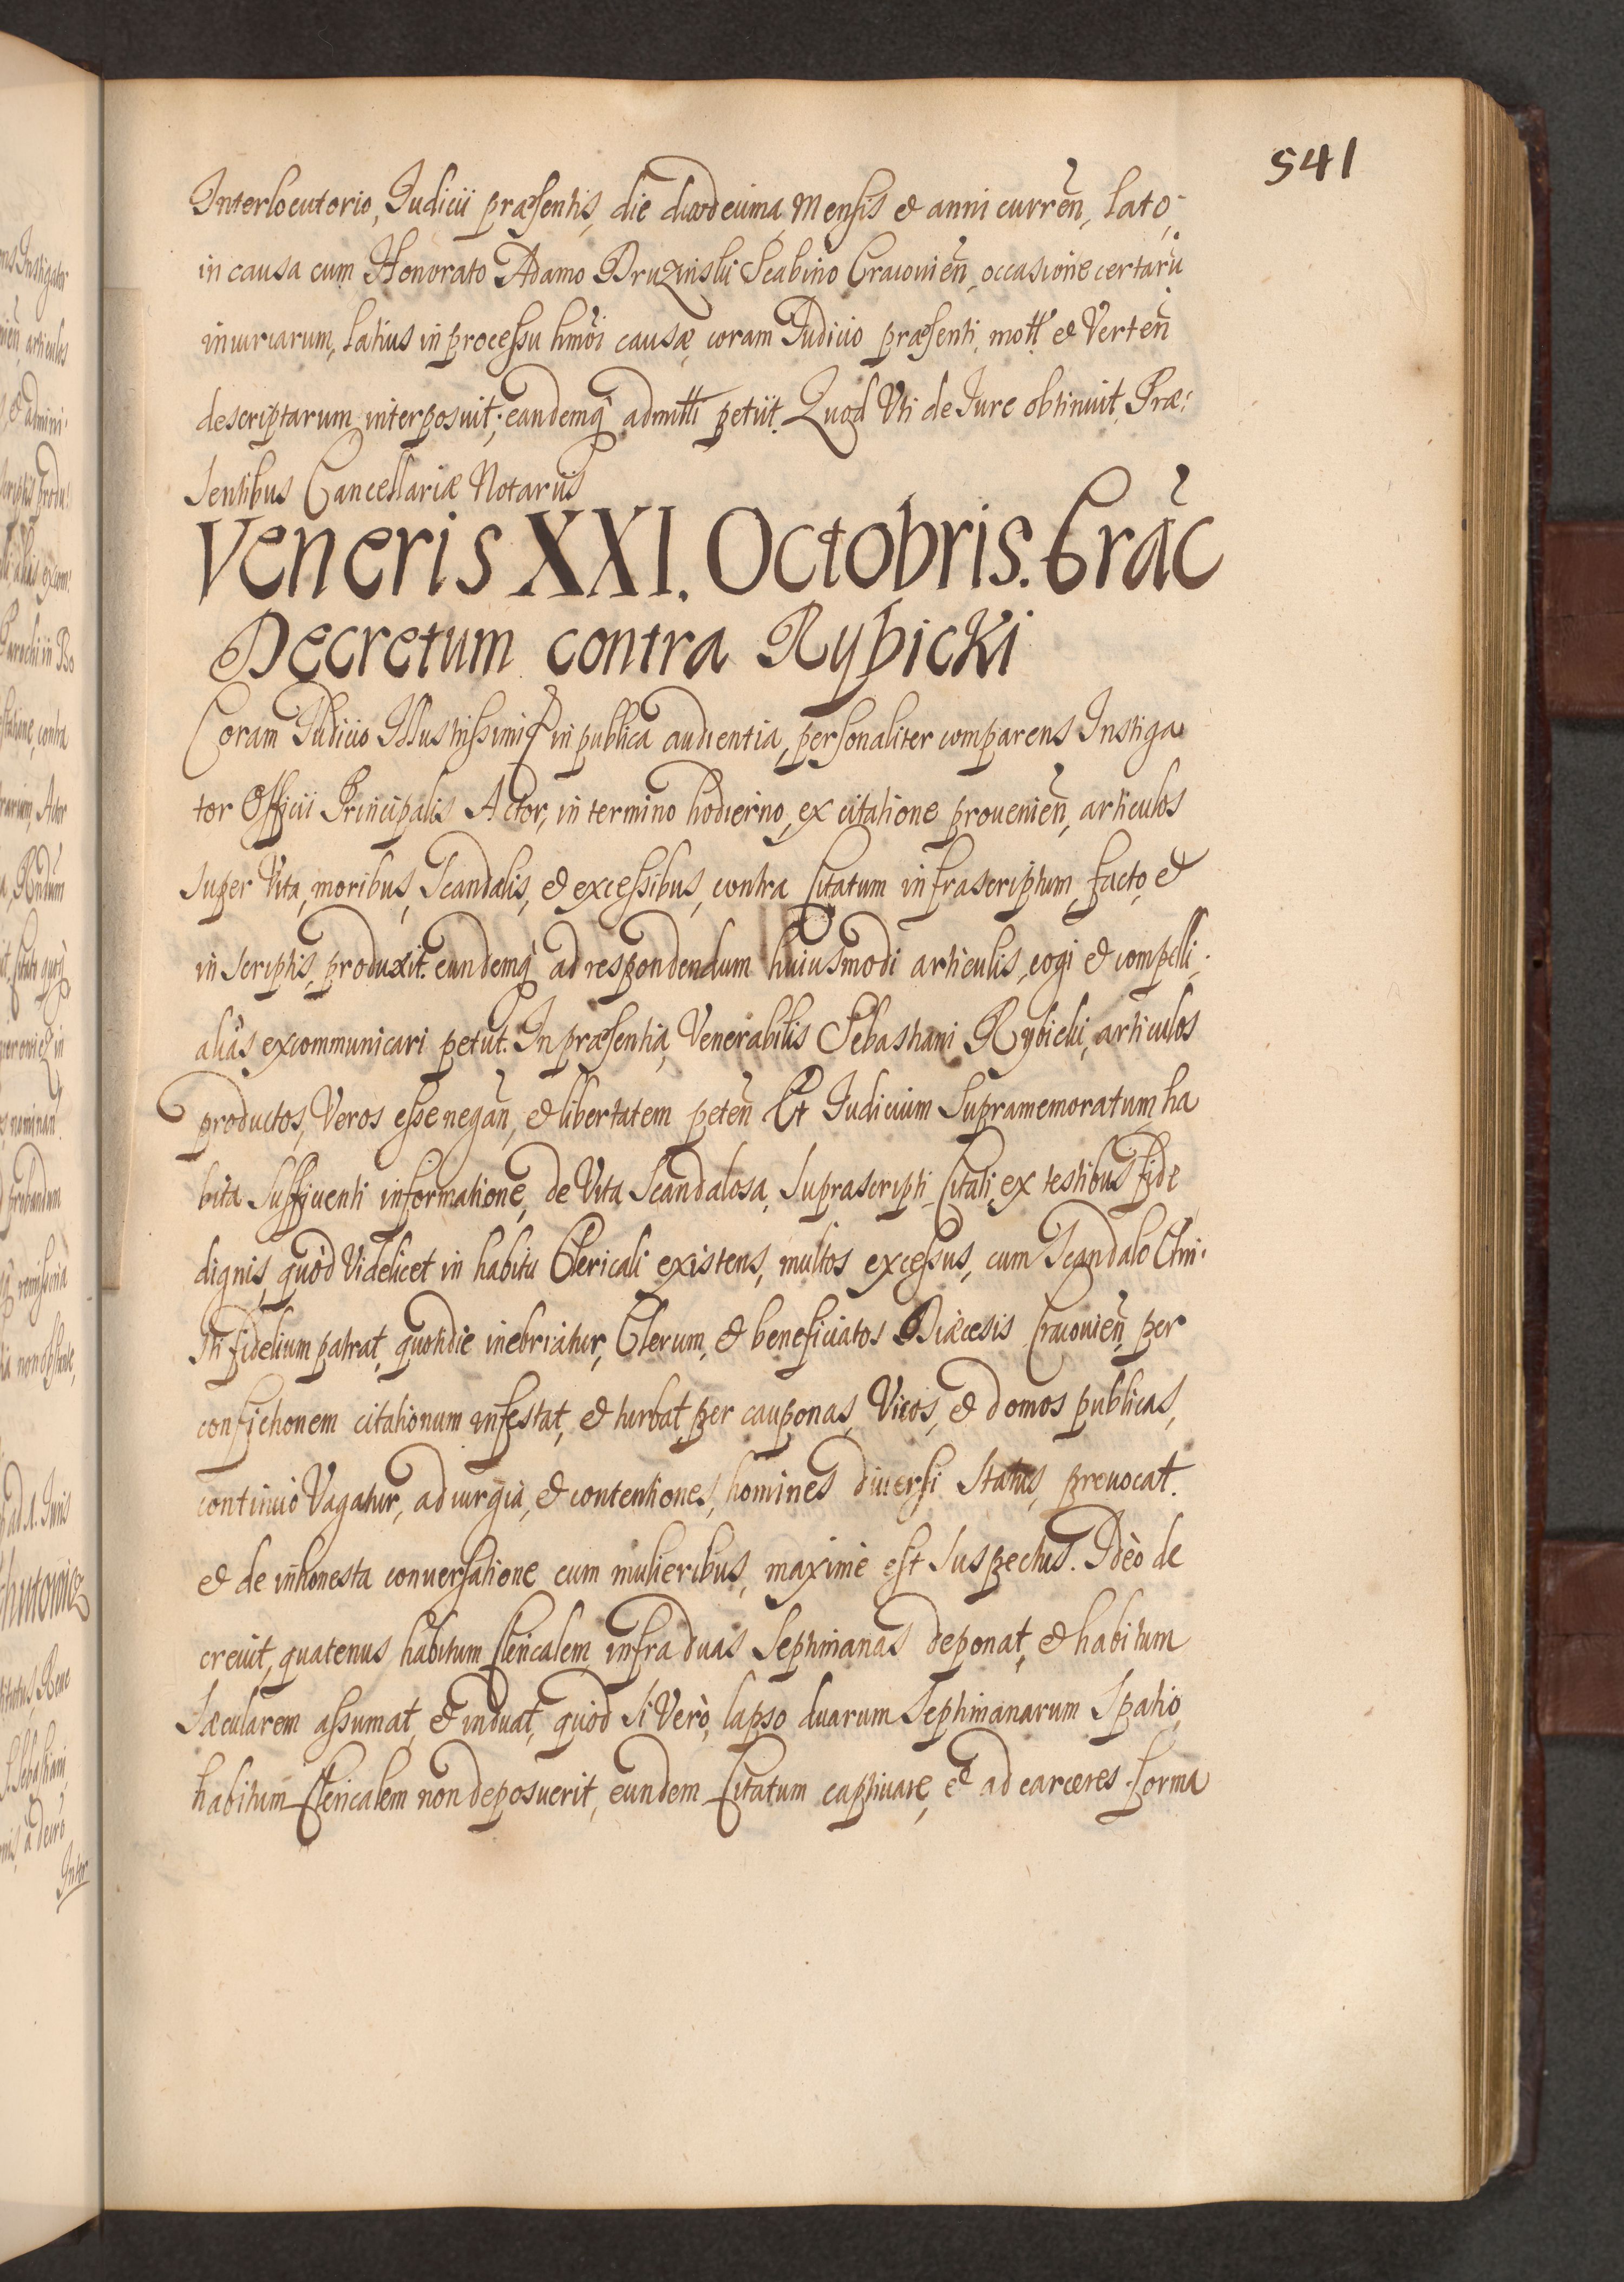 541
Interlocutorio, Iudicii præsentis, die duodecima, Mensis et anni curren̄, lato,
in causa cum Honorato Adamo Druzinski Scabino Cracouien̄, occasione certarū
iniuriarum, latius in processu hmōi causæ, coram Iudicio præsenti, mott et Verten̄
descriptarum, interposuit; eandemq admitti petiit. Quod Vti de Iure obtinuit, Præ:
sentibus Cancellariæ Notariis
Veneris XXI. Octobris. Crāc
Decretum contra Rybicki
Coram Iudicio Illustrissimi in publica audientia, personaliter comparens Instiga
tor Officii Principalis Actor, in termino hodierno, ex citatione prouenien̄, articulos
super Vita, moribus, Scandalis, et excessibus, contra Citatum infrascriptum, facto, et
in scriptis, produxit. eundemq ad respondendum huiusmodi articulis, cogi et compelli,
aliàs excommunicari petiit. In præsentia, Venerabilis Sebastiani Rybicki, articulos
productos, Veros esse negan̄, et libertatem peten̄ Et Iudicium Supramemoratum, ha
bita Sufficienti informatione, de Vita Scandalosa, Suprascripti Citati, ex testibus fide
dignis, quòd Videlicet in habitu Clericali existens, multos excessus, cum Scandalo Chri:
sti fidelium patrat, quotidie inebriatur, Clerum, et beneficiatos Diæcesis Cracouien̄, per
confictionem citationum infestat, et turbat, per cauponas, Vicos, et domos publicas,
continuò Vagatur, ad iurgia, et contentiones, homines diuersi Status, prouocat.
et de inhonesta conuersatione cum mulieribus, maximè est Suspectus. Ideò de
creuit, quatenus habitum Clericalem, infra duas Septimanas deponat, et habitum
Sæcularem assumat, et induat, quòd Si Verò, lapso duarum Septimanarum Spatio,
habitum Clericalem non deposuerit, eundem Citatum captiuare, et ad carceres forma